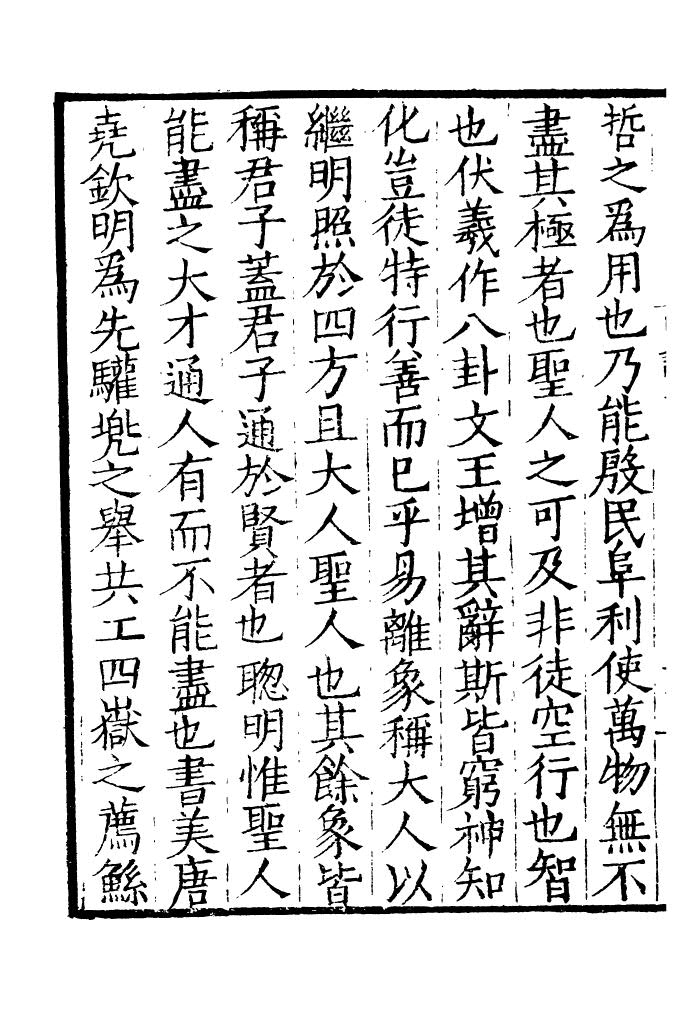 哲之爲用也乃能殷民阜利使萬物無不
盡其極者也聖人之可及非徒空行也智
也伏羲作八卦文王增其辭斯皆窮神知
化豈徒特行善而已乎易離象稱大人以
繼明照於四方且大人聖人也其餘象皆
稱君子蓋君子通於賢者也聦明惟聖人
能盡之大才通人有而不能盡也書美唐
堯欽明爲先驩兠之舉共工四嶽之薦鯀